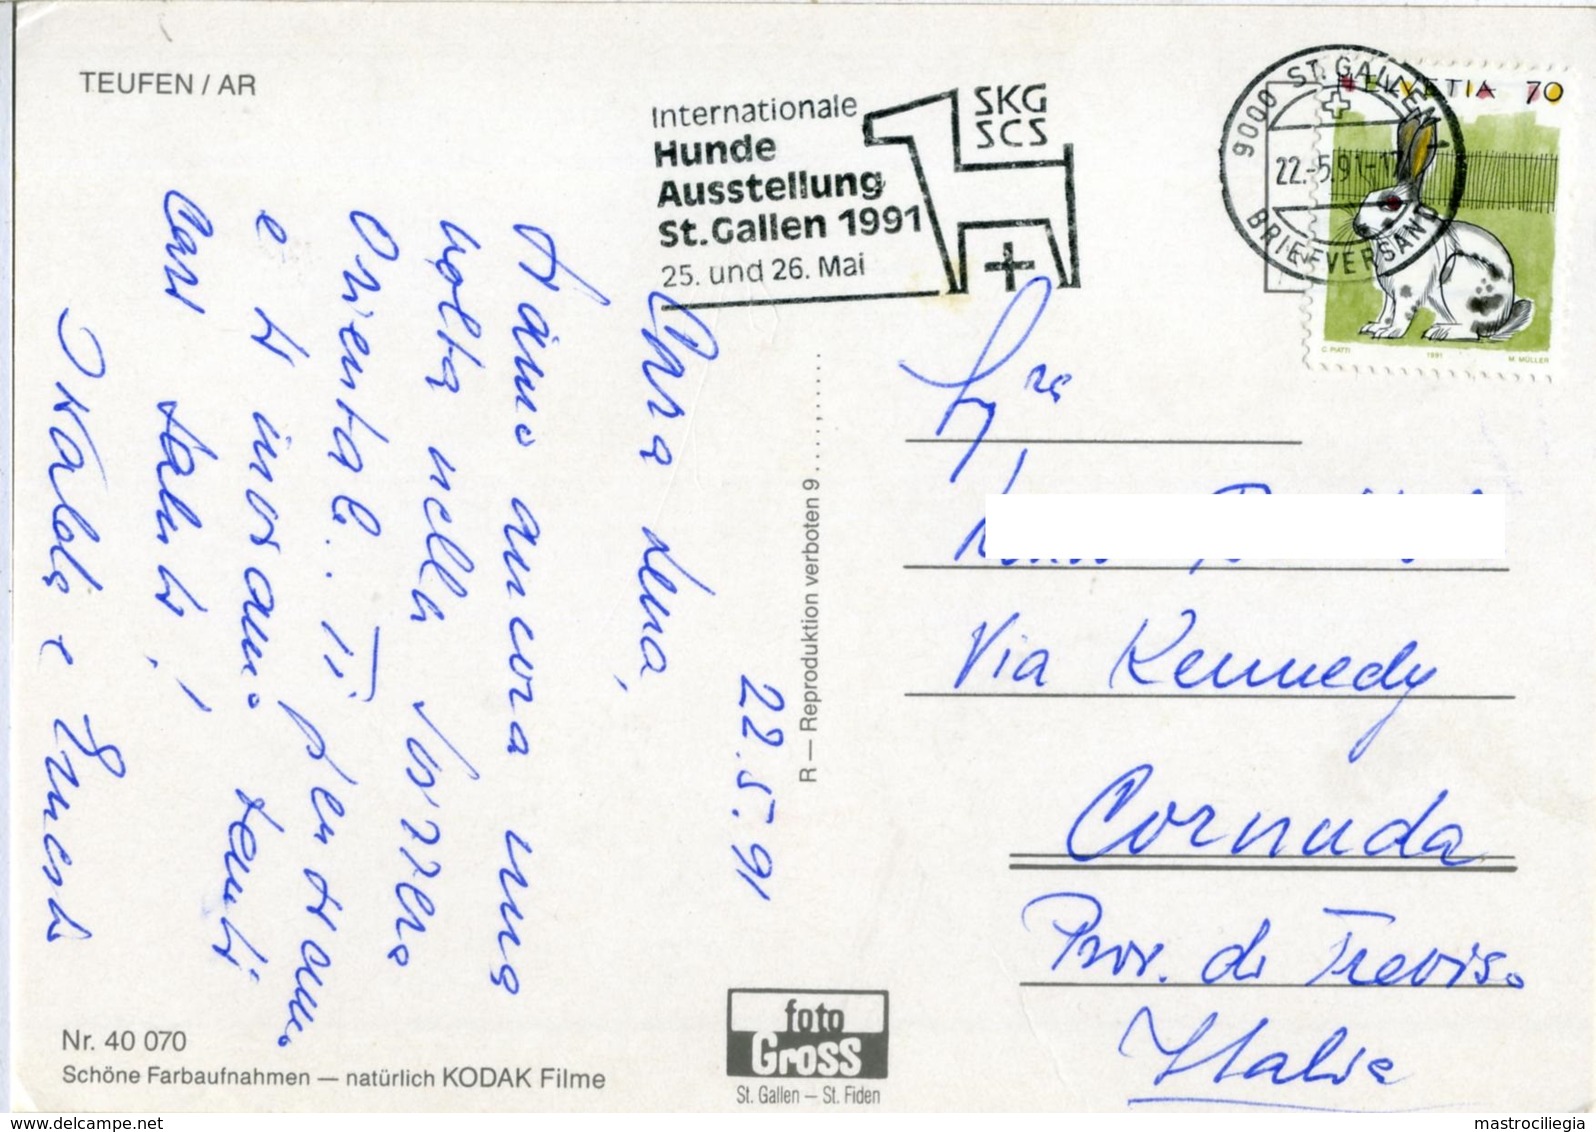 TEUFEN / AR
Internationale
Hunde
Ausstellung
St.Gallen 1991
25. und 26. Mai
SKG
SCS
9000 ST. GALLEN 1
22.-5.91-17
BRIEFVERSAND
HELVETIA 70
C. PIATTI 1991 M. MÜLLER
22.5.91
Cara Lena,
siamo ancora una
volta nella Svizzera
Orientale. Ti pensiamo
e ti inviamo tanti
cari saluti!
Isalde e Ernesto
R — Reproduktion verboten 9
Sig.ra
Via Kennedy
Cornuda
Prov. di Treviso
Italia
Nr. 40 070
Schöne Farbaufnahmen — natürlich KODAK Filme
foto
Gross
St. Gallen — St. Fiden
delcampe.net
mastrociliegia